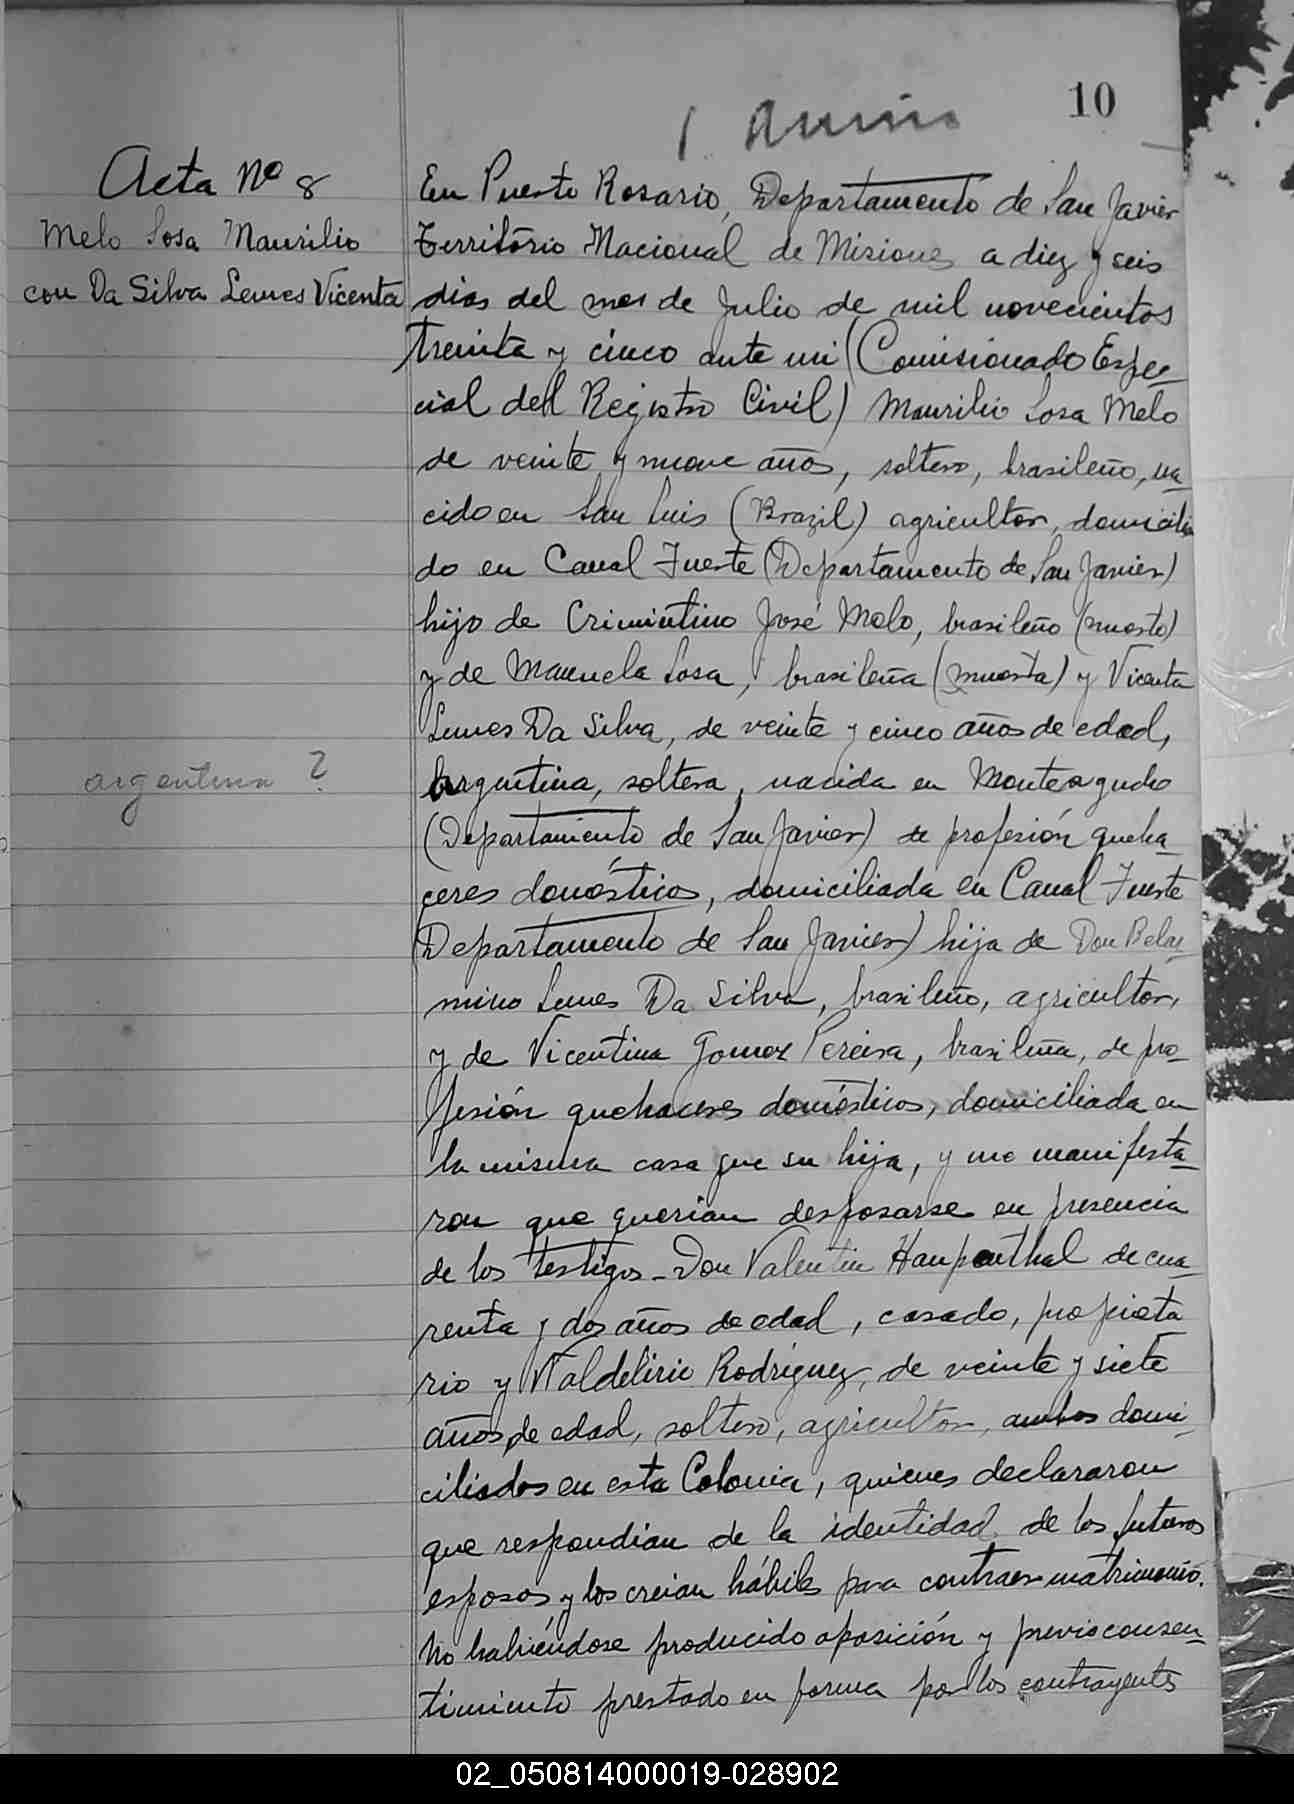 10
Acta Nº 8
Melo Sosa Maurilio
con Da Silva Lemes Vicenta
argentina ?
En Puerto Rosario, Departamento de San Javier
Território Nacional de Misiones a diez y seis
dias del mes de Julio de mil novecientos
treinta y cinco ante mi (Comisionado Espe-
cial del Registro Civil) Maurilio Sosa Melo
de veinte y nueve años, soltero, brasileño, na-
cido en San Luis (Brazil) agricultor, domicilia
do en Canal Fuerte (Departamento de San Javier)
hijo de Crimintino José Melo, brasileño (muerto)
y de Manuela Sosa, brasileña (muerta) y Vicenta
Lemes Da Silva, de veinte y cinco años de edad,
Argentina, soltera, nacida en Monteagudo
(Departamento de San Javier) de profesión queha-
ceres domésticos, domiciliada en Canal Fuerte
Departamento de San Javier) hija de Don Belar-
mino Lemes Da Silva, brasileño, agricultor,
y de Vicentina Gomez Pereira, brasileña, de pro-
fesión quehaceres domésticos, domiciliada en
la misma casa que su hija, y me manifesta-
ron que querian desposarse en presencia
de los testigos - Don Valentin Haupenthal de cua-
renta y dos años de edad, casado, propieta
rio y Valdelirio Rodriguez, de veinte y siete
años de edad, soltero, agricultor, ambos domi-
ciliados en esta Colonia, quienes declararon
que respondian de la identidad de los futuros
esposos y los creian hábiles para contraer matrimonio.
No habiéndose producido oposición y previo consen-
timiento prestado en forma por los contrayentes
02_050814000019-028902